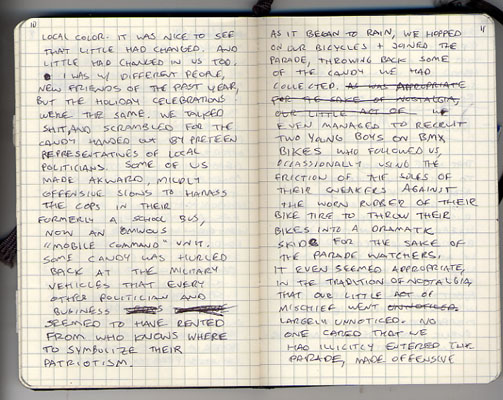 10
LOCAL COLOR. IT WAS NICE TO SEE
THAT LITTLE HAD CHANGED. AND
LITTLE HAD CHANGED IN US TOO.
I WAS W/ DIFFERENT PEOPLE,
NEW FRIENDS OF THE PAST YEAR,
BUT THE HOLIDAY CELEBRATIONS
WERE THE SAME. WE TALKED
SHIT, AND SCRAMBLED FOR THE
CANDY HANDED OUT BY PRETEEN
REPRESENTATIVES OF LOCAL
POLITICIANS. SOME OF US
MADE AKWARD, MILDLY
OFFENSIVE SIGNS TO HARASS
THE COPS IN THEIR
FORMERLY A SCHOOL BUS,
NOW AN OMINOUS
"MOBILE COMMAND" UNIT.
SOME CANDY WAS HURLED
BACK AT THE MILITARY
VEHICLES THAT EVERY
OTHER POLITICIAN AND
BUSINESS
SEEMED TO HAVE RENTED
FROM WHO KNOWS WHERE
TO SYMBOLIZE THEIR
PATRIOTISM.
11
AS IT BEGAN TO RAIN, WE HOPPED
ON OUR BICYCLES + JOINED THE
PARADE, THROWING BACK SOME
OF THE CANDY WE HAD
COLLECTED. AS WAS APPROPRIATE
FOR THE SAKE OF NOSTALGIA,
OUR LITTLE ACT OF WE
EVEN MANAGED TO RECRUIT
TWO YOUNG BOYS ON BMX
BIKES WHO FOLLOWED US,
OCCASSIONALLY USING THE
FRICTION OF THE SOLES OF
THEIR SNEAKERS AGAINST
THE WORN RUBBER OF THEIR
BIKE TIRE TO THROW THEIR
BIKES INTO A DRAMATIC
SKID FOR THE SAKE OF
THE PARADE WATCHERS.
IT EVEN SEEMED APPROPRIATE,
IN THE TRADITION OF NOSTALGIA,
THAT OUR LITTLE ACT OF
MISCHIEF WENT UNNOTICED.
LARGELY UNNOTICED. NO
ONE CARED THAT WE
HAD ILLICITLY ENTERED THE
PARADE, MADE OFFENSIVE